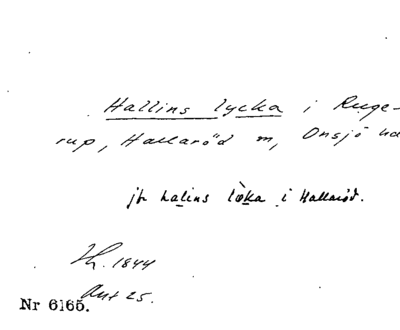 Hallins lycka i Ruge-
rup, Hallaröd m, Onsjö hd
jfr halins lỳka i Hallaröd.
1844
Ant 25.
Nr 6165.